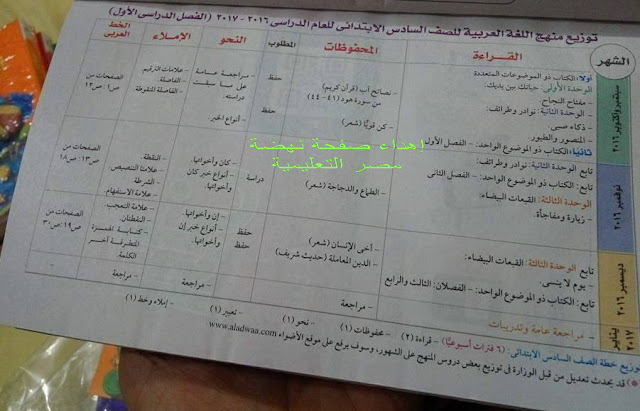 توزيع منهج اللغة العربية للصف السادس الابتدائى للعام الدراسى ٢٠١٦ - ٢٠١٧ (الفصل الدراسى الأول)
الشهر
القــراءة
المحفوظات
المطلوب
النحو
الإملاء
الخط العربى
سبتمبر وأكتوبر ٢٠١٦
أولا: الكتاب ذو الموضوعات المتعددة
الوحدة الأولى: حياتك بين يديك:
- مفتاح النجاح.
- الوحدة الثانية: نوادر وطرائف:
- ذكاء صبى.
- المنصور والطيور
ثانيا: الكتاب ذو الموضوع الواحد: - الفصل الأول
- نصائح أب (قرآن كريم)
من سورة هود (٤١-٤٤)
- كن قويًّا (شعر)
حفظ
حفظ
- مراجعة عامة
على ما سبقت
دراسته.
- أنواع الخبر.
- علامات الترقيم
- الفاصلة.
- الفاصلة المنقوطة
الصفحات من
ص٦ : ص١٢
إهداء صفحة نهضة
مصر التعليمية
نوفمبر ٢٠١٦
تابع الوحدة الثانية: نوادر وطرائف:
تابع الكتاب ذو الموضوع الواحد: - الفصل الثانى
الوحدة الثالثة: القبعات البيضاء:
- زيارة ومفاجأة.
- الطماع والدجاجة (شعر)
دراسة
- كان وأخواتها.
- أنواع خبر كان
وأخواتها.
- النقطة.
- علامتا التنصيص
- الشرطة
- علامة الاستفهام
الصفحات من
ص١٣ : ص١٨
ديسمبر ٢٠١٦
تابع الوحدة الثالثة: القبعات البيضاء:
- يوم لا ينسى.
تابع: الكتاب ذو الموضوع الواحد: - الفصلان: الثالث والرابع
- أخى الإنسان (شعر)
- الدين المعاملة (حديث شريف)
حفظ
حفظ
- إن وأخواتها.
- أنواع خبر إن
وأخواتها.
- علامة التعجب.
- النقطتان.
- كتابة الهمزة
المتطرفة آخر
الكلمة.
الصفحات من
ص١٩ : ص٣٠
يناير ٢٠١٧
- مراجعة عامة وتدريبات
- مراجعة
- مراجعة
- مراجعة
توزيع خطة الصف السادس الابتدائى: (٦ فترات أسبوعيًّا) - قراءة (٢) - محفوظات (١) - نحو (١) - تعبير (١) - إملاء وخط (١)
(*) قد يحدث تعديل من قبل الوزارة فى توزيع بعض دروس المنهج على الشهور، وسوف يرفع على موقع الأضواء www.aladwaa.com